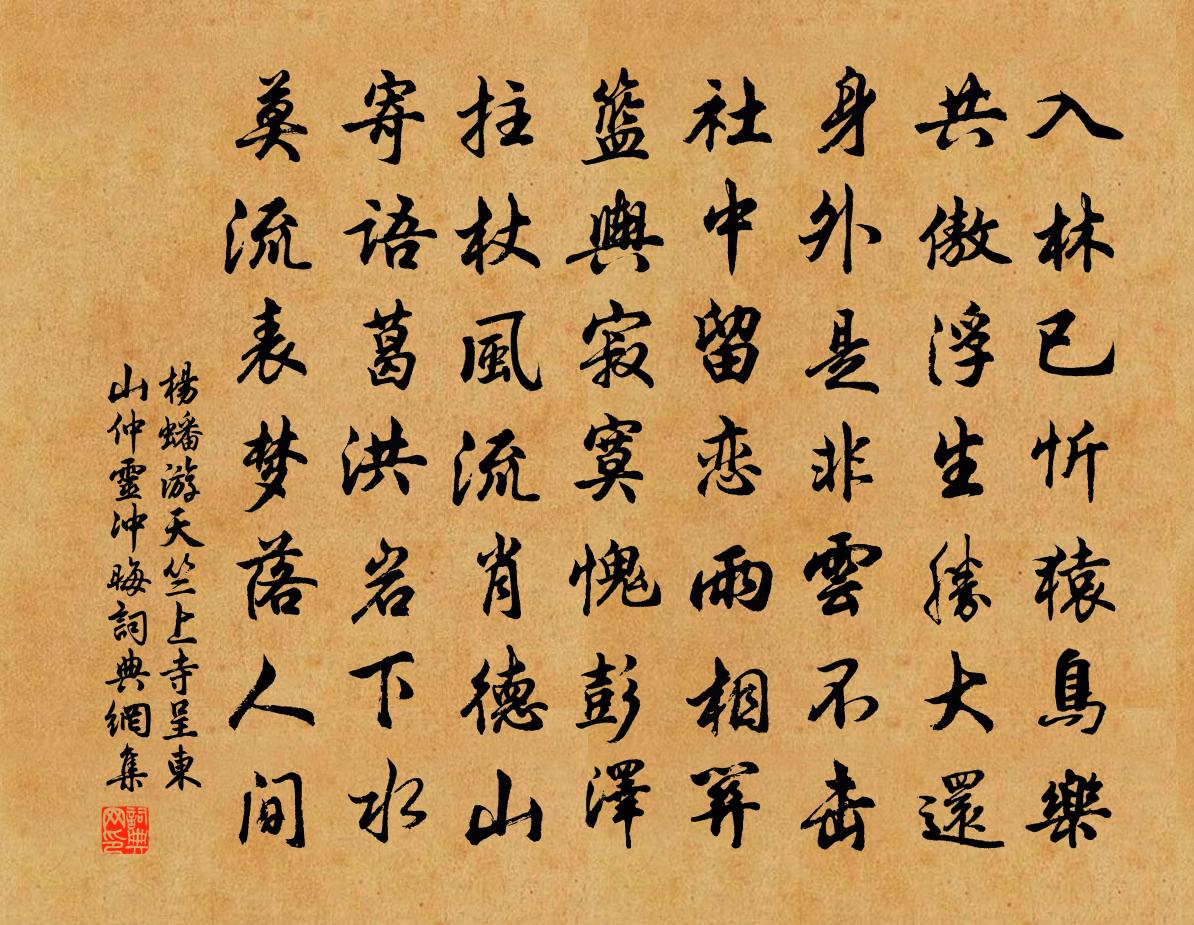 入林已忻猿鳥樂
共傲浮生勝大還
身外是非雲不出
社中留恋雨相關
籃輿寂寞愧彭澤
拄杖風流肖德山
寄語葛洪岩下水
莫流表梦落人間
楊蟠游天竺上寺呈東
山仲靈冲晦詞典網集
詞典
网印